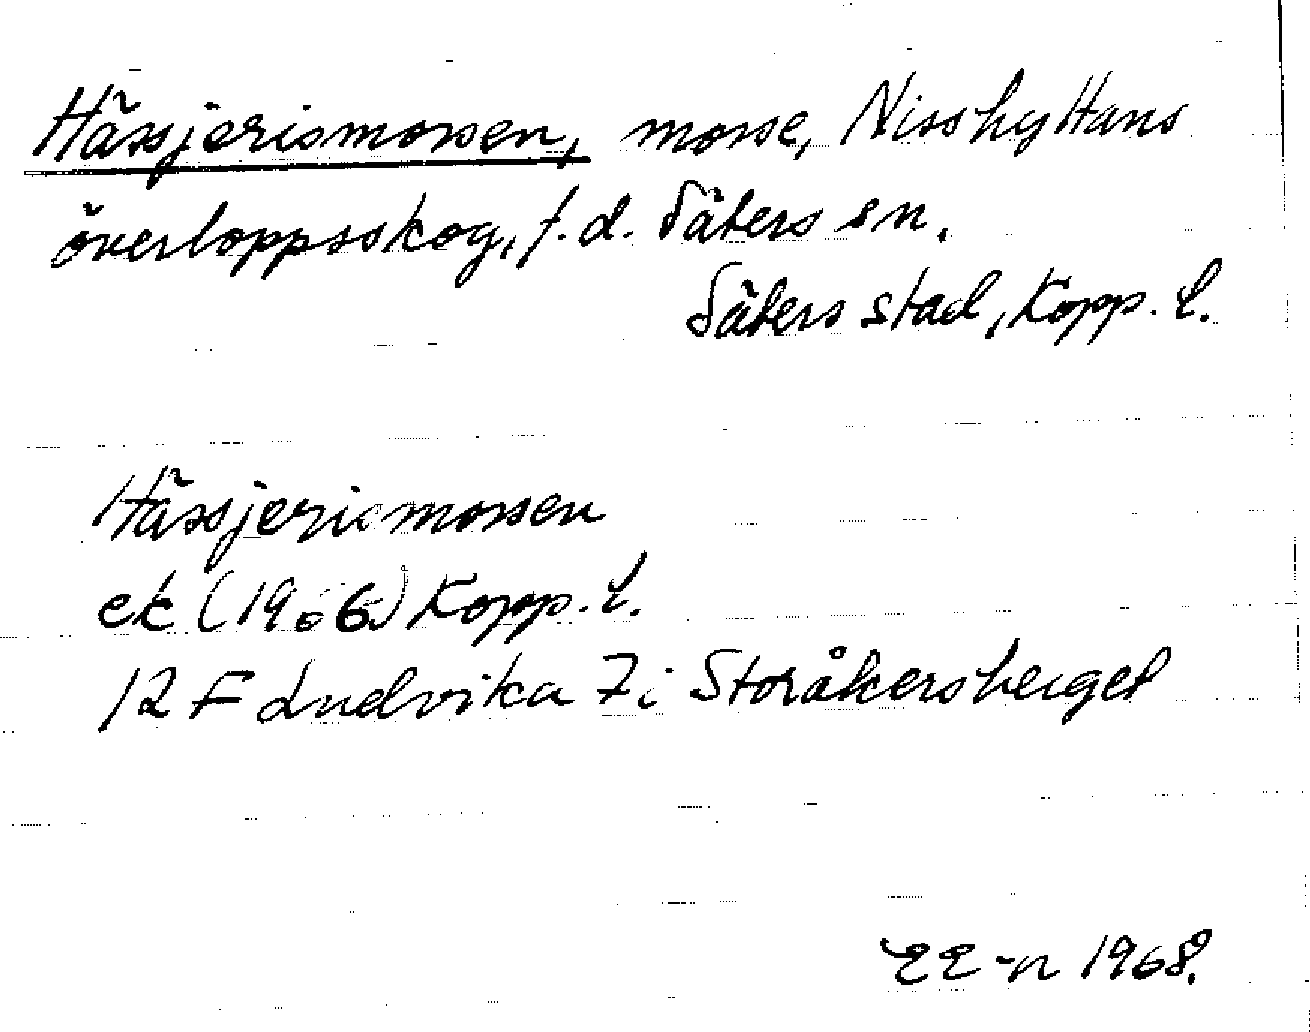 Hässjerismossen, mosse, Nisshyttans
överloppsskog, f.d. Säters sn.
Säters stad, Kopp. l.
Hässjerismossen
ek (1966) Kopp. l.
12 F Ludvika 7i Storåkersberget
EE-n 1968.